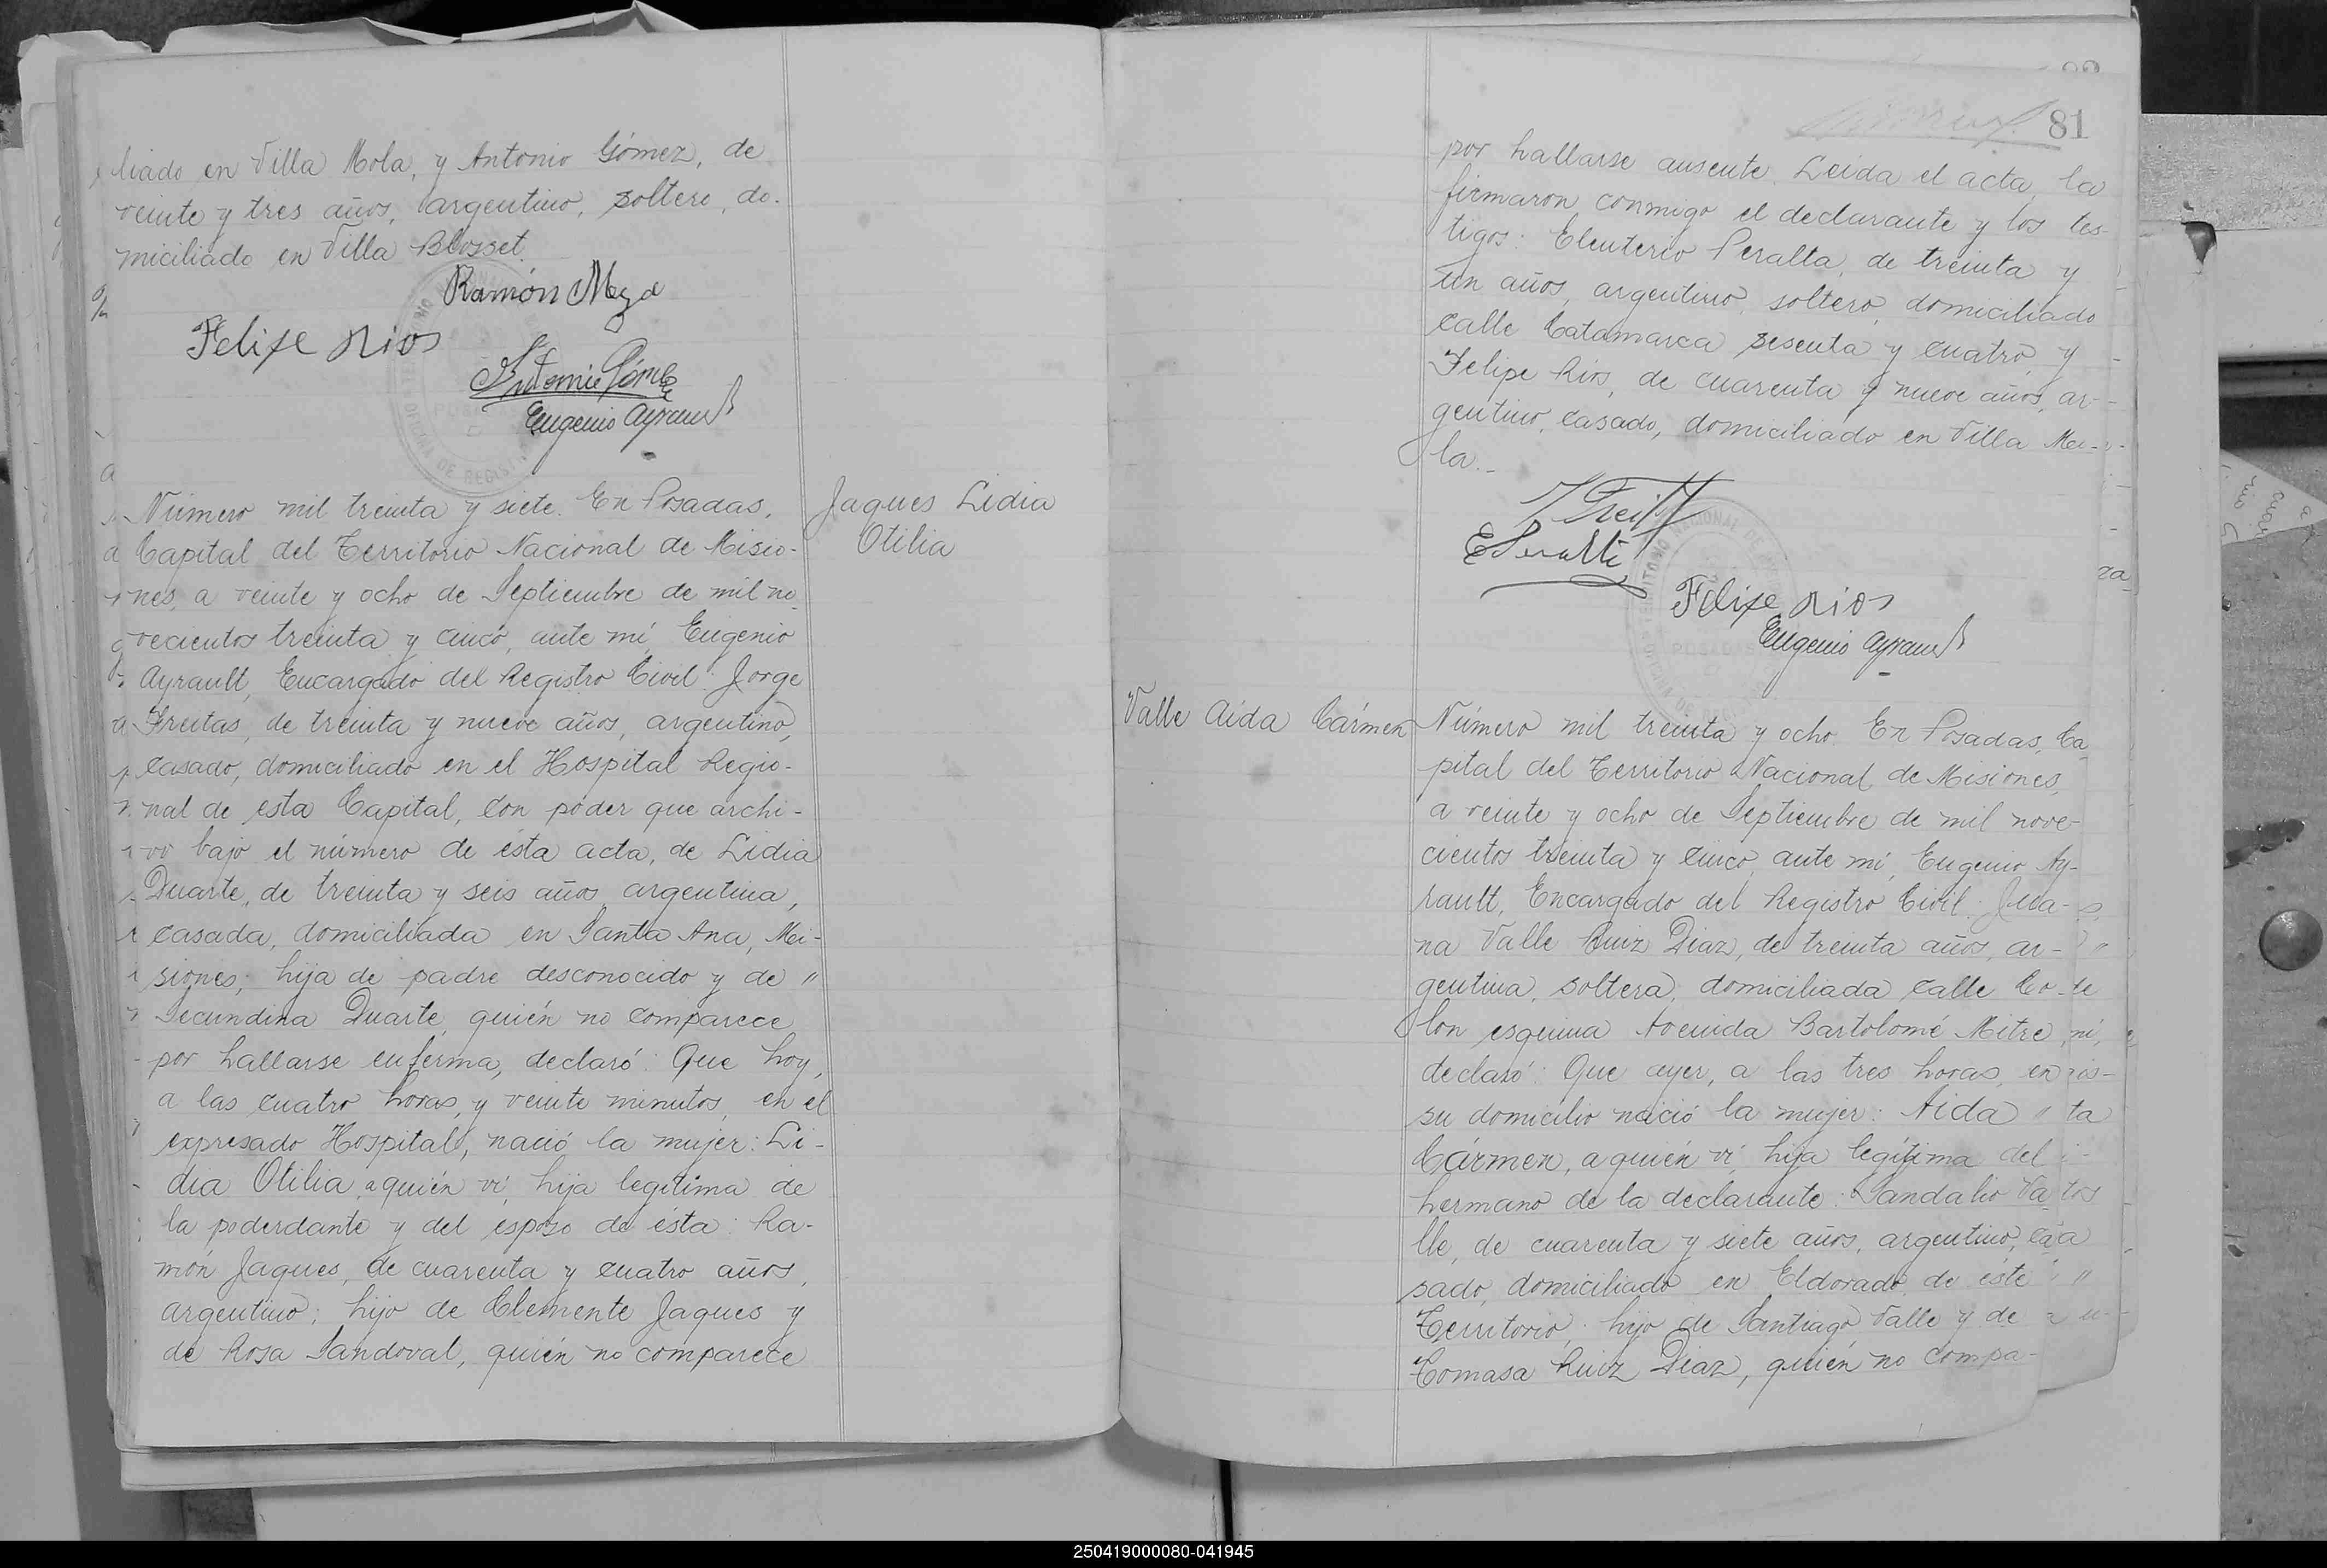 liado en Villa Mola, y Antonio Gómez, de
veinte y tres años, argentino, soltero, do-
miciliado en Villa Blosset.
Ramón Meza
Felipe Rios
Antonio Gómez
Eugenio Ayrault
Jaques Lidia
Otilia
Número mil treinta y siete. En Posadas,
Capital del Territorio Nacional de Misio-
nes, a veinte y ocho de Septiembre de mil no-
vecientos treinta y cinco, ante mí, Eugenio
Ayrault, Encargado del Registro Civil: Jorge
Freitas, de treinta y nueve años, argentino,
casado, domiciliado en el Hospital Regio-
nal de esta Capital, con poder que archi-
vo bajo el número de ésta acta, de Lidia
Duarte, de treinta y seis años, argentina,
casada, domiciliada en Santa Ana, Mi-
siones; hija de padre desconocido y de "
Secundina Duarte, quién no comparece
por hallarse enferma, declaró: Que hoy,
a las cuatro horas, y veinte minutos, en el
expresado Hospital, nació la mujer: Li-
dia Otilia, a quién vi, hija legítima de
la poderdante y del esposo de ésta: Ra-
món Jaques, de cuarenta y cuatro años,
argentino; hijo de Clemente Jaques y
de Rosa Sandoval, quién no comparece
81
por hallarse ausente. Leida el acta, la
firmaron conmigo el declarante y los tes-
tigos: Eleuterio Peralta, de treinta y
un años, argentino, soltero, domiciliado
calle Catamarca sesenta y cuatro, y
Felipe Rios, de cuarenta y nueve años, ar-
gentino, casado, domiciliado en Villa Mo-
la.-
J Freitas
E Peralta
Felipe Rios
Eugenio Ayrault
Valle Aida Cármen
Número mil treinta y ocho. En Posadas, Ca-
pital del Territorio Nacional de Misiones,
a veinte y ocho de Septiembre de mil nove-
cientos treinta y cinco, ante mí, Eugenio Ay-
rault, Encargado del Registro Civil: Jua-
na Valle Ruiz Diaz, de treinta años, ar-
gentina, soltera, domiciliada calle Co-
lon esquina Avenida Bartolomé Mitre,
declaró: Que ayer, a las tres horas, en
su domicilio nació la mujer: Aida "
Cármen, a quién vi, hija legítima del
hermano de la declarante: Sandalio Va-
lle, de cuarenta y siete años, argentino, ca-
sado, domiciliado en Eldorado, de éste
Territorio; hijo de Santiago Valle y de
Tomasa Ruiz Diaz, quién no compa-
250419000080-041945